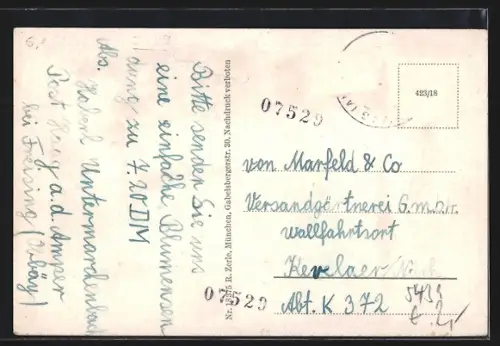 Bitte senden Sie uns
eine einfache Blumensen
dung zu 7.20 DM
Abs. Hubert Untermarchenbach
Post Haag a.d. Amper
bei Freising (Obby)
Nr. 15375 R. Zerle, München, Gabelsbergerstr. 30, Nachdruck verboten
07529
07529
423/18
von Marfeld & Co
Versandgärtnerei G.m.b.
Wallfahrtsort
Kevelaer
Abt. K 372
5439